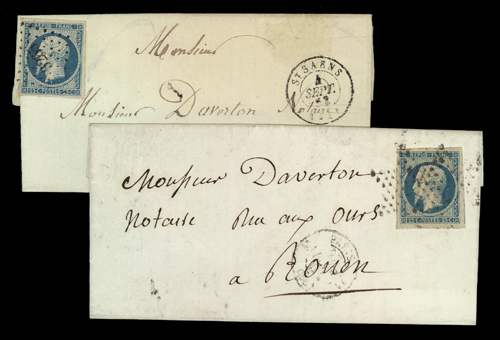 REPUB. FRANC.
25 C POSTES 25 C
Monsieur
Monsieur Daverton Notaire
1
ST SAENS
4
SEPT.
REPUB. FRANC.
25 C POSTES 25 C
Monsieur Daverton
Notaire Rue aux Ours
a Rouen